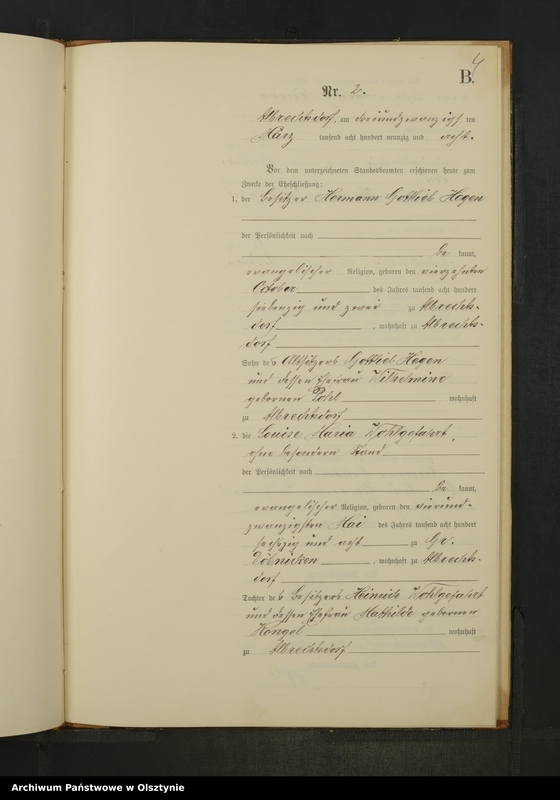 4
B.
Nr. 2.
Albrechtsdorf, am dreiundzwanzigsten
März tausend acht hundert neunzig und acht.
Vor dem unterzeichneten Standesbeamten erschienen heute zum
Zwecke der Eheschließung:
1. der Besitzer Hermann Gottlieb Hegen
der Persönlichkeit nach
be kannt,
evangelischer Religion, geboren den vierzehnten
October des Jahres tausend acht hundert
siebenzig und zwei zu Albrechts-
dorf, wohnhaft zu Albrechts-
dorf
Sohn des Altsitzers Gottlieb Hegen
und dessen Ehefrau Wilhelmine
geborenen Pohl wohnhaft
zu Albrechtsdorf
2. die Louise Maria Wohlgefahrt,
ohne besondern Stand
der Persönlichkeit nach
be kannt,
evangelischer Religion, geboren den vierund-
zwanzigsten Mai des Jahres tausend acht hundert
sechszig und acht zu Gr.
wohnhaft zu Albrechts-
dorf
Tochter des Besitzers Heinrich Wohlgefahrt
und dessen Ehefrau Mathilde geborenen
wohnhaft
zu Albrechtsdorf
Archiwum Państwowe w Olsztynie